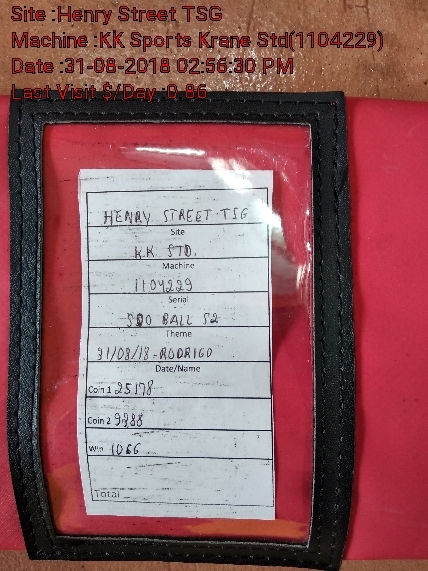 Site :Henry Street TSG
Machine :KK Sports Krane Std(1104229)
Date :31-08-2018 02:56:30 PM
Last Visit $/Day :0.86
HENRY STREET TSG
Site
KK STD.
Machine
1104229
Serial
BALL S2
Theme
31/08/18-RODRIGO
Date/Name
Coin 1 25178
Coin 2 9288
Win 1066
Total